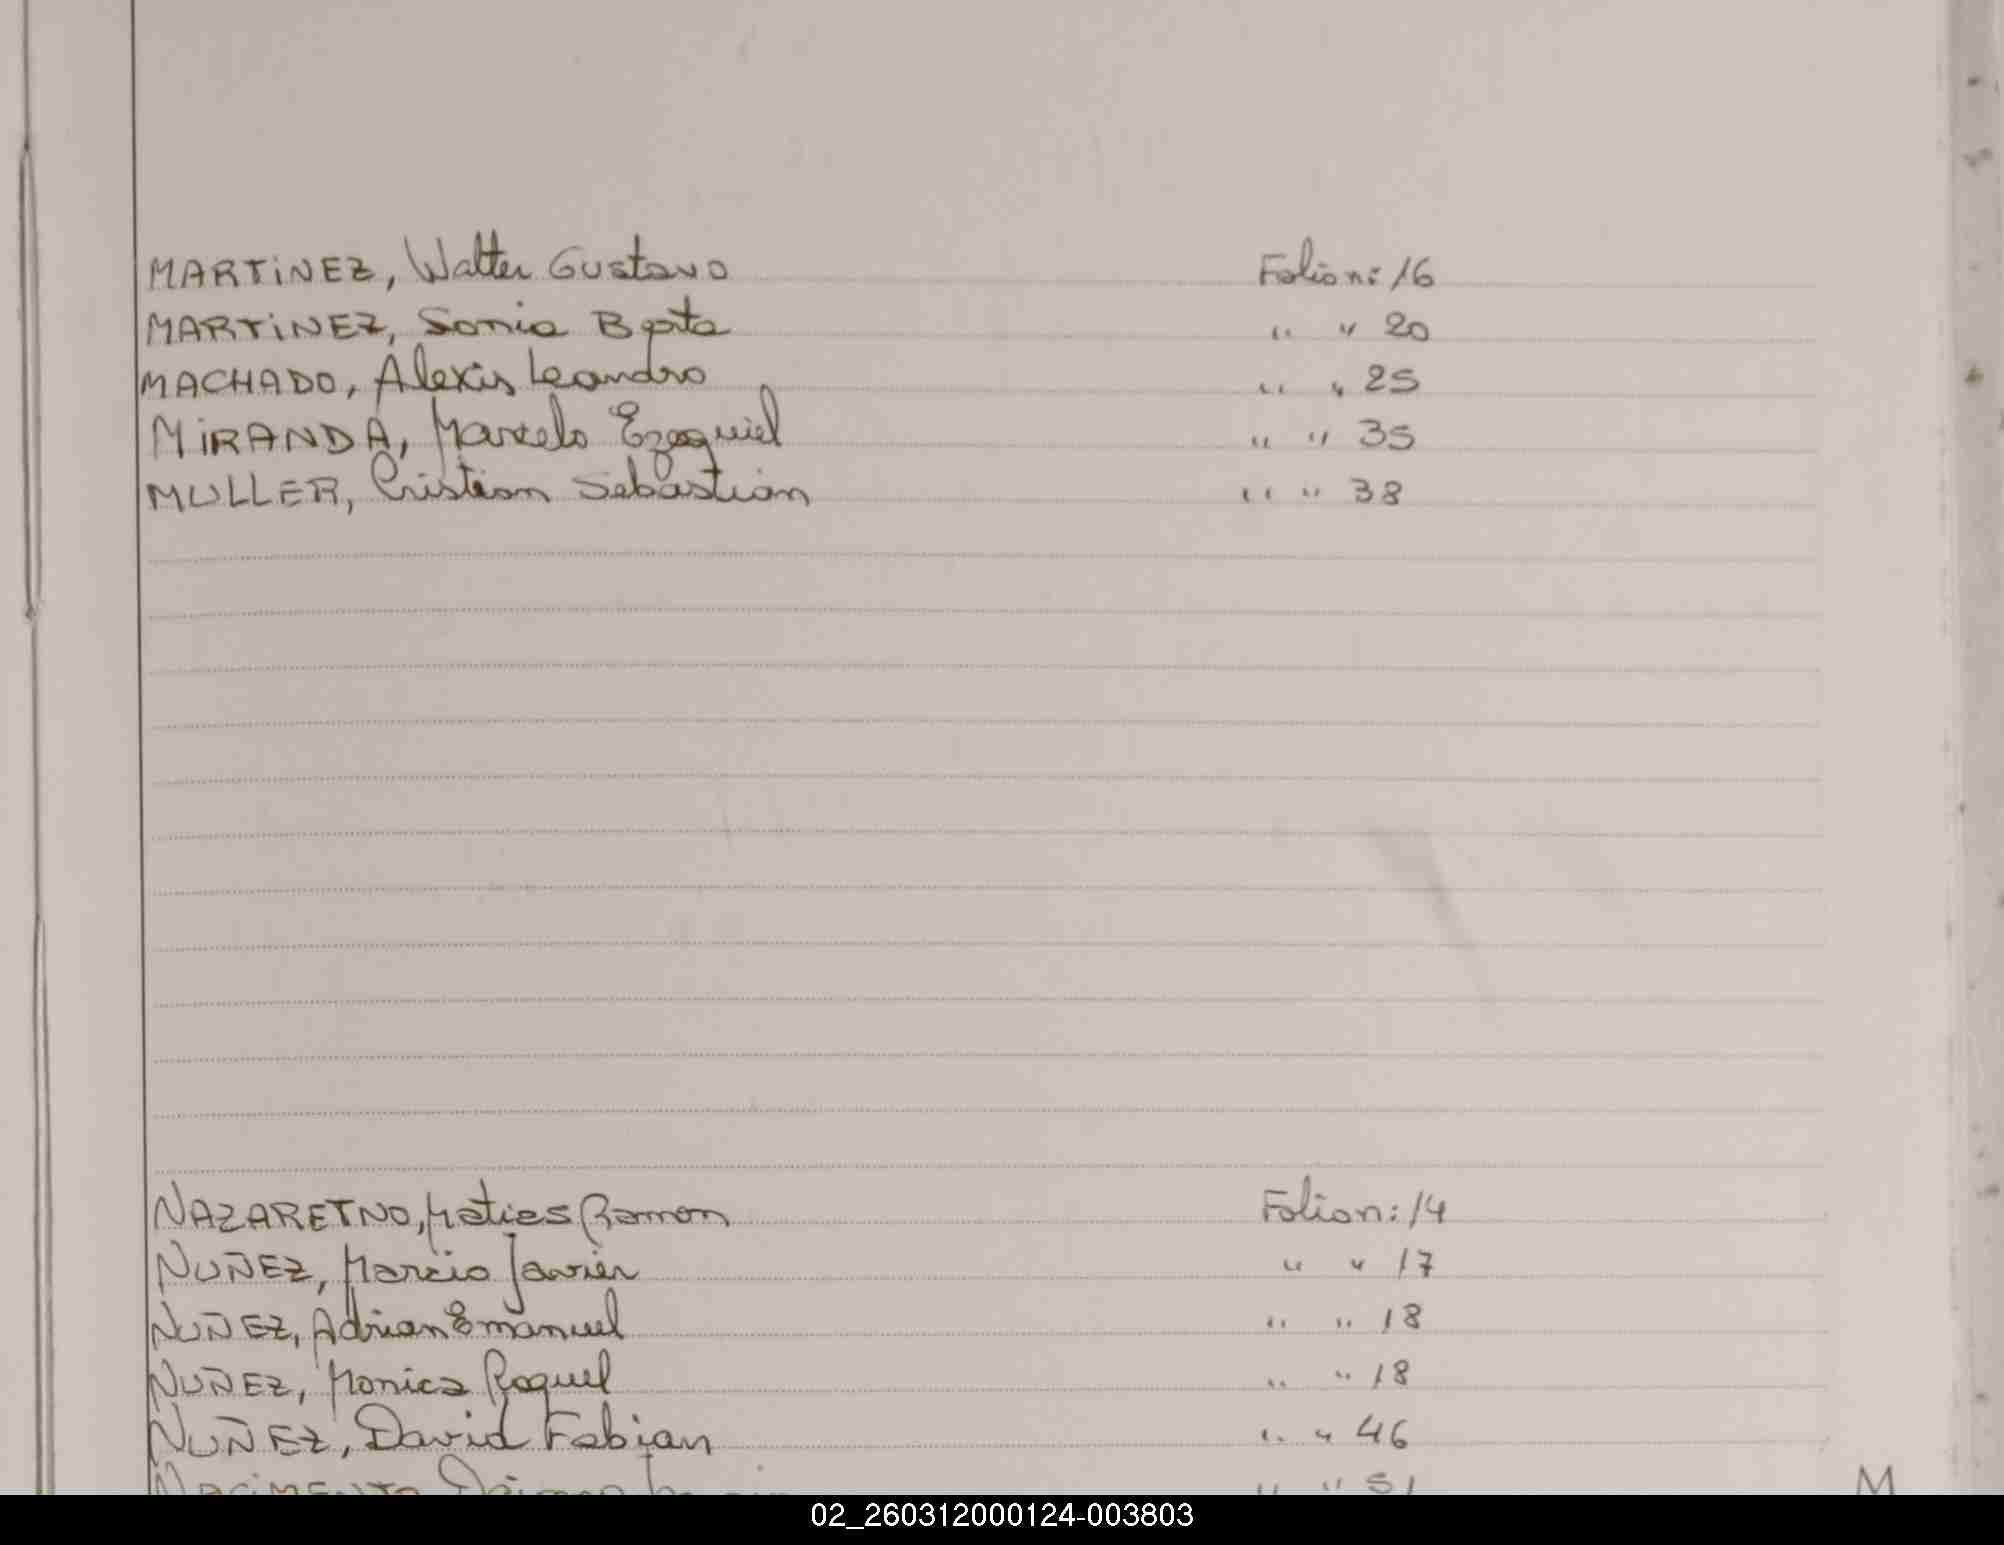 MARTINEZ, Walter Gustavo Folio n: 16
MARTINEZ, Sonia Berta " " 20
MACHADO, Alexis Leandro " " 25
MIRANDA, Marcelo Ezequiel " " 35
MULLER, Cristian Sebastian " " 38
NAZARETNO, Matias Ramon Folio n: 14
NUÑEZ, Marcio Javier " " 17
NUÑEZ, Adrian Emanuel " " 18
NUÑEZ, Monica Raquel " " 18
NUÑEZ, David Fabian " " 46
" " 51
M
02_260312000124-003803